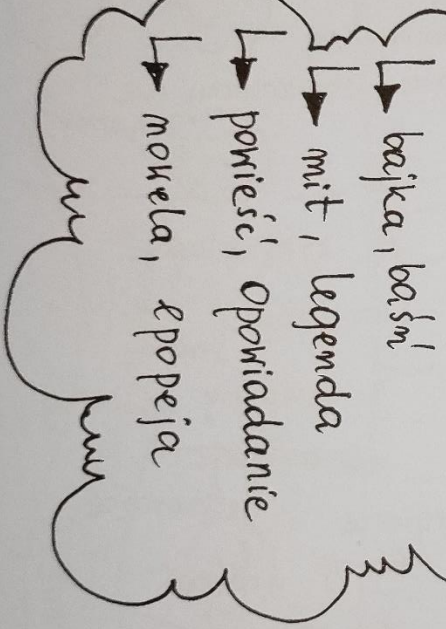 bajka, baśń
mit, legenda
powieść, opowiadanie
nowela, epopeja